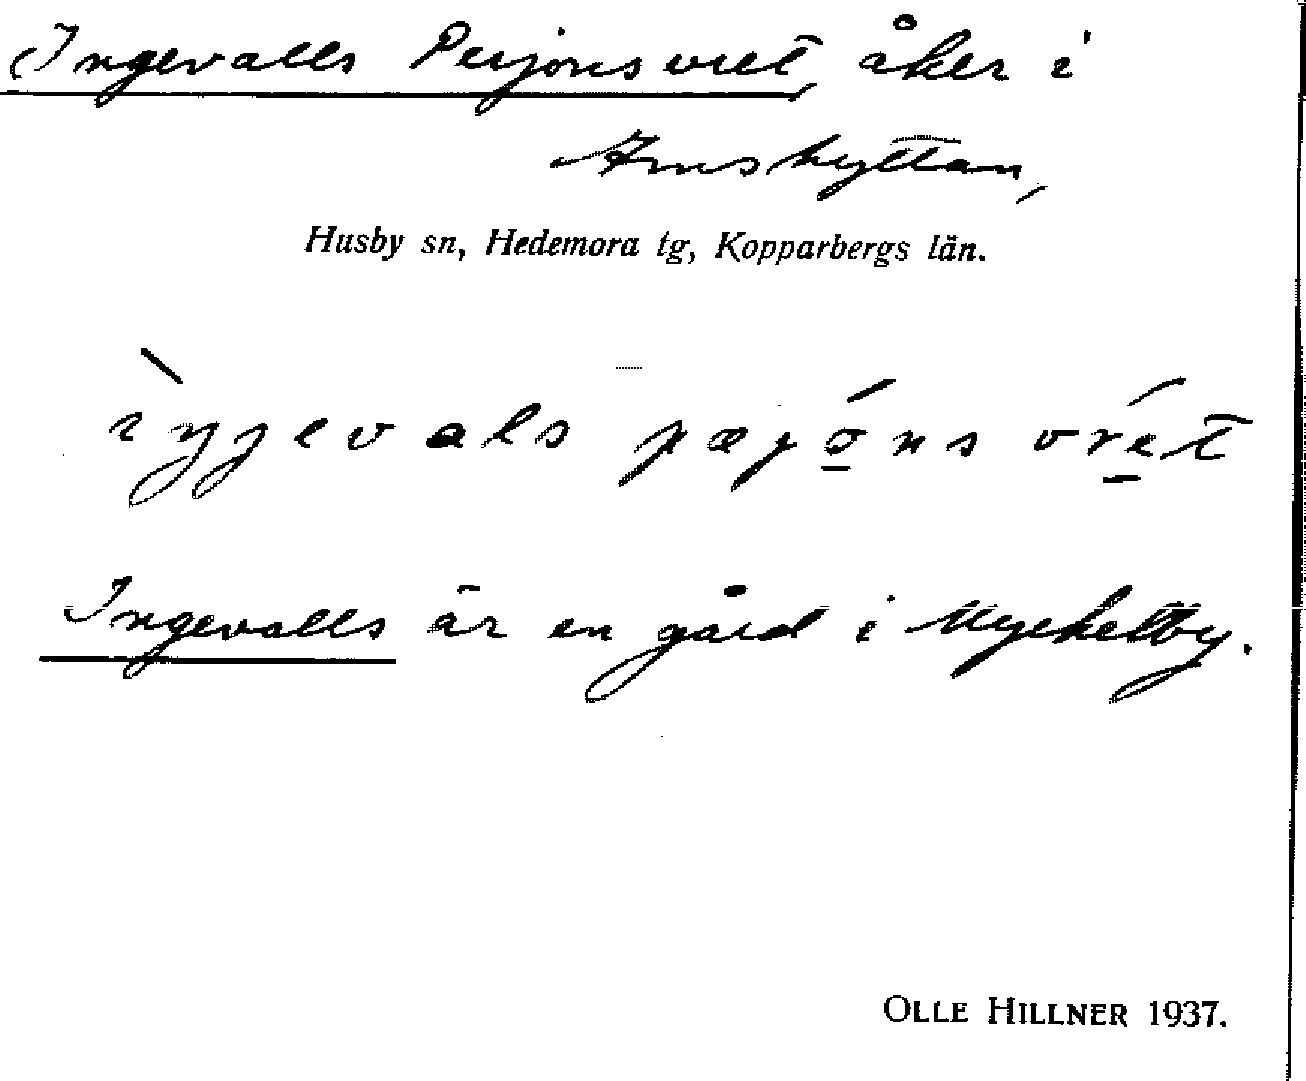 Ingevalls Persjonsvret, åker i
Amshyttan,
Husby sn, Hedemora tg, Kopparbergs län.
Ingevalls är en gård i Myckelby.
OLLE HILLNER 1937.